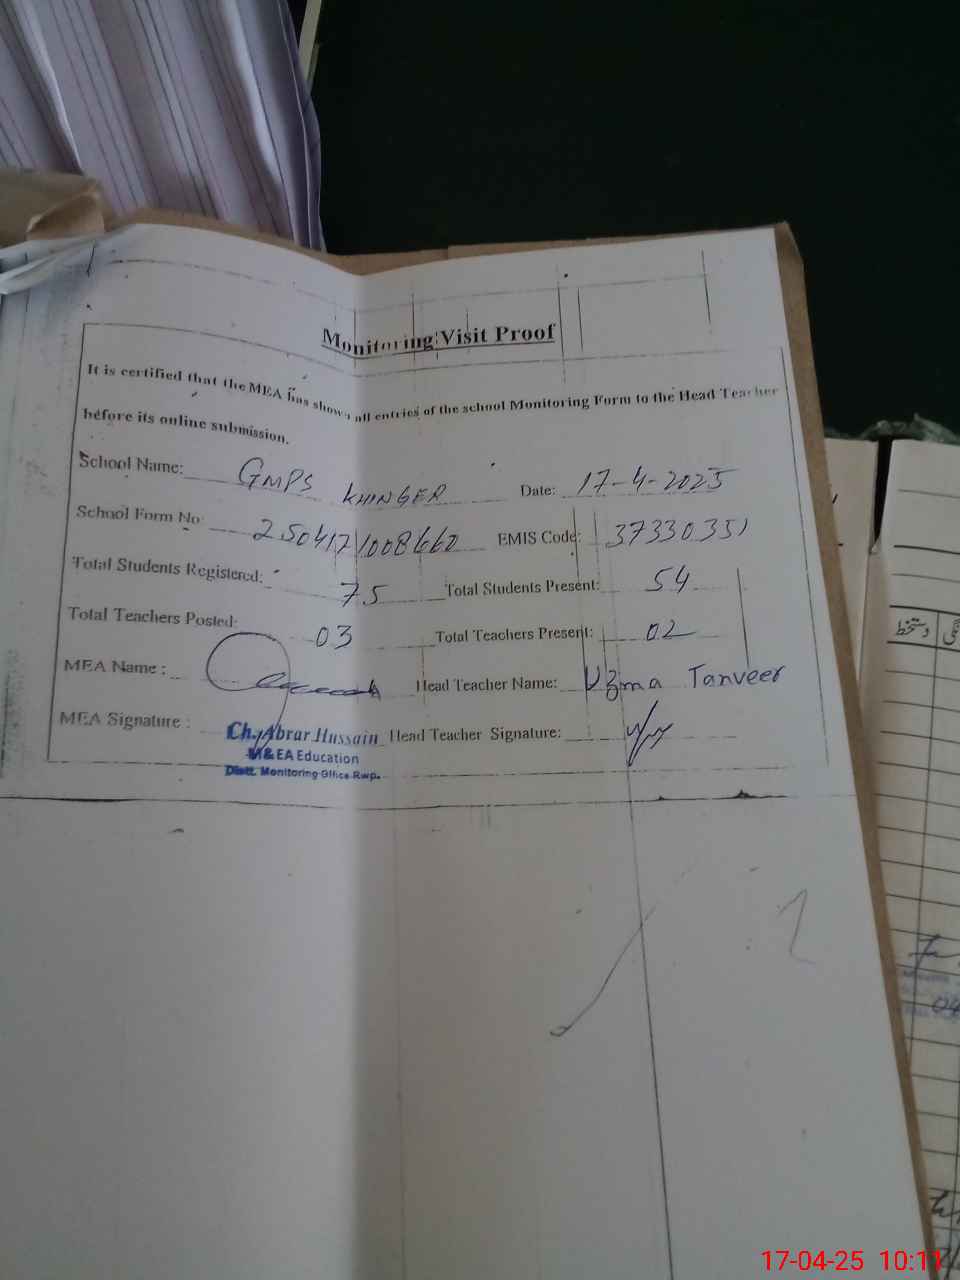 Monitoring Visit Proof
It is certified that the MEA has shown all entries of the school Monitoring Form to the Head Teacher
before its online submission.
School Name: GMPS KHINGER Date: 17-4-2025
School Form No: 250417 1008660 EMIS Code: 37330351
Total Students Registered: 75 Total Students Present: 54
Total Teachers Posted: 03 Total Teachers Present: 02
MEA Name : Head Teacher Name: Uzma Tanveer
MEA Signature : Ch. Abrar Hussain Head Teacher Signature:
M&EA Education
Distt. Monitoring Office Rwp.
دستخط
04
17-04-25 10:11